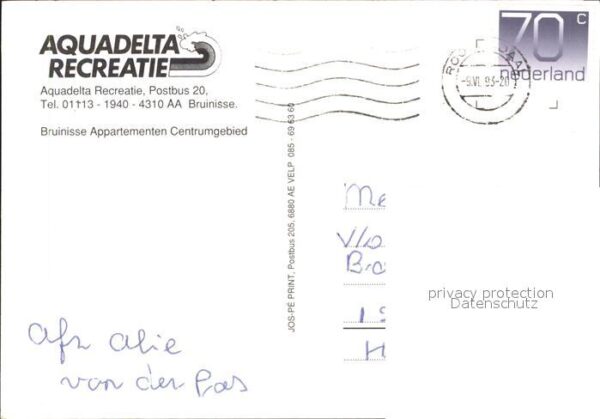 AQUADELTA
RECREATIE
Aquadelta Recreatie, Postbus 20,
Tel. 01113 - 1940 - 4310 AA Bruinisse.
Bruinisse Appartementen Centrumgebied
JOS-PE PRINT, Postbus 205, 6880 AE VELP 085 - 69 63 60
70 c
nederland
-9.VI. 93-20
Me
V/d
B
privacy protection
Datenschutz
1
H
Afz Alie
van der Pas